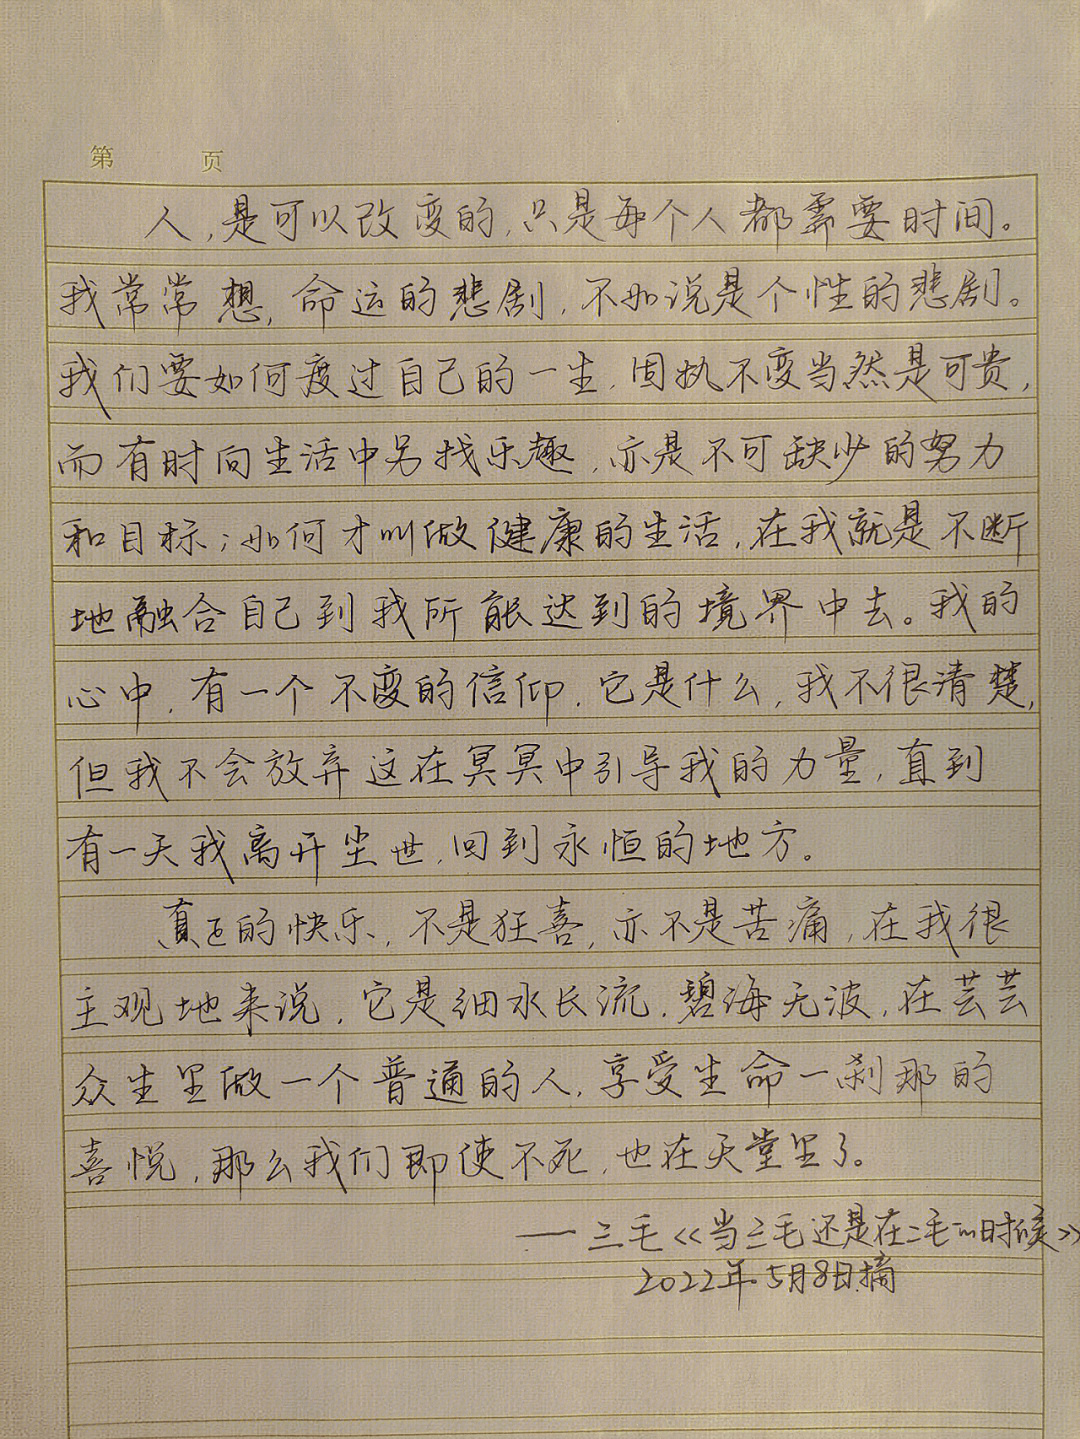 第 页
人，是可以改变的，只是每个人都需要时间。
我常常想，命运的悲剧，不如说是个性的悲剧。
我们要如何度过自己的一生，固执不变当然是可贵，
而有时向生活中另找乐趣，亦是不可缺少的努力
和目标；如何才叫做健康的生活，在我就是不断
地融合自己到我所能达到的境界中去。我的
心中，有一个不变的信仰，它是什么，我不很清楚，
但我不会放弃这在冥冥中引导我的力量，直到
有一天我离开尘世，回到永恒的地方。
真正的快乐，不是狂喜，亦不是苦痛，在我很
主观地来说，它是细水长流，碧海无波，在芸芸
众生里做一个普通的人，享受生命一刹那的
喜悦，那么我们即使不死，也在天堂里了。
——三毛《当三毛还是在二毛的时候》
2022年.5月8日.摘